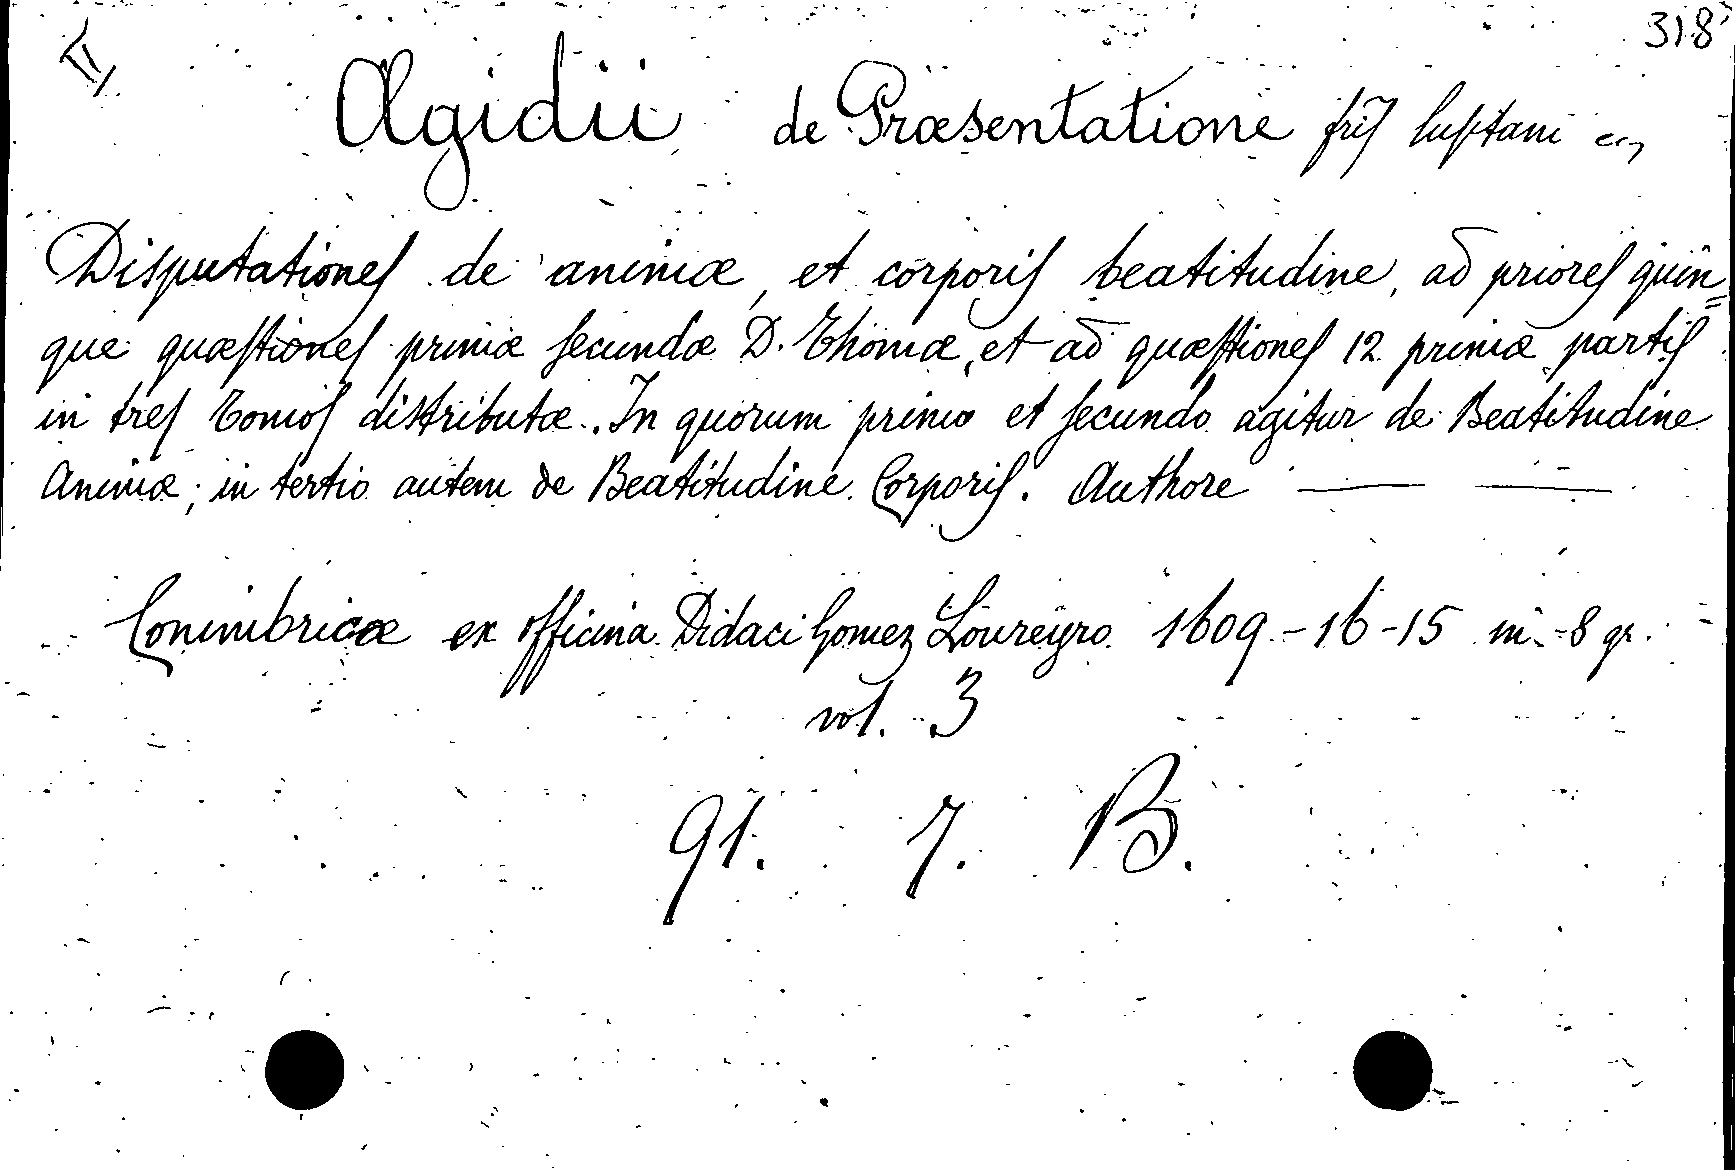 318
Ægidii de Præsentatione fris lusitani
Disputationes de animæ, et corporis beatitudine, ad priores quin=
que quæstiones primæ secundæ D. Thomæ, et ad quæstiones 12 primæ partis
in tres Tomos distributæ. In quorum primo et secundo agitur de Beatitudine
Animæ; in tertio autem de Beatitudine Corporis. Authore — —
Conimbricæ ex officina Didaci Gomez Loureyro 1609-16-15 in-8 gr.
vol. 3
91. 7. B.